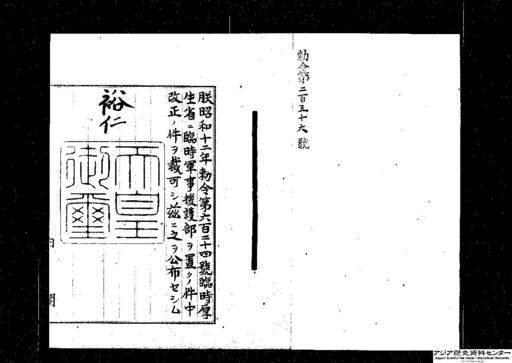 勅令第二百五十六號
朕昭和十二年勅令第六百二十四號臨時厚
生省ニ臨時軍事援護部ヲ置クノ件中
改正ノ件ヲ裁可シ茲ニ之ヲ公布セシム
裕仁
天皇
御璽
内閣
アジア歴史資料センター
Japan Center for Asian Historical Records